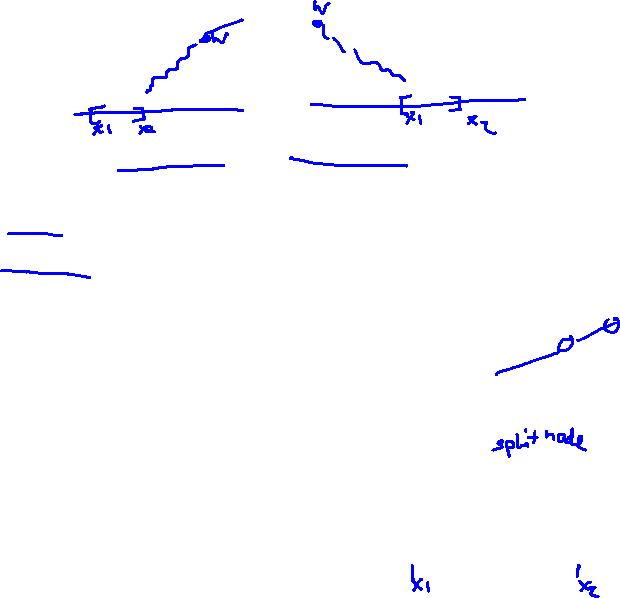 w
w
[ x1 x2 ] [ x1 x2 ]
split node
x1 x2